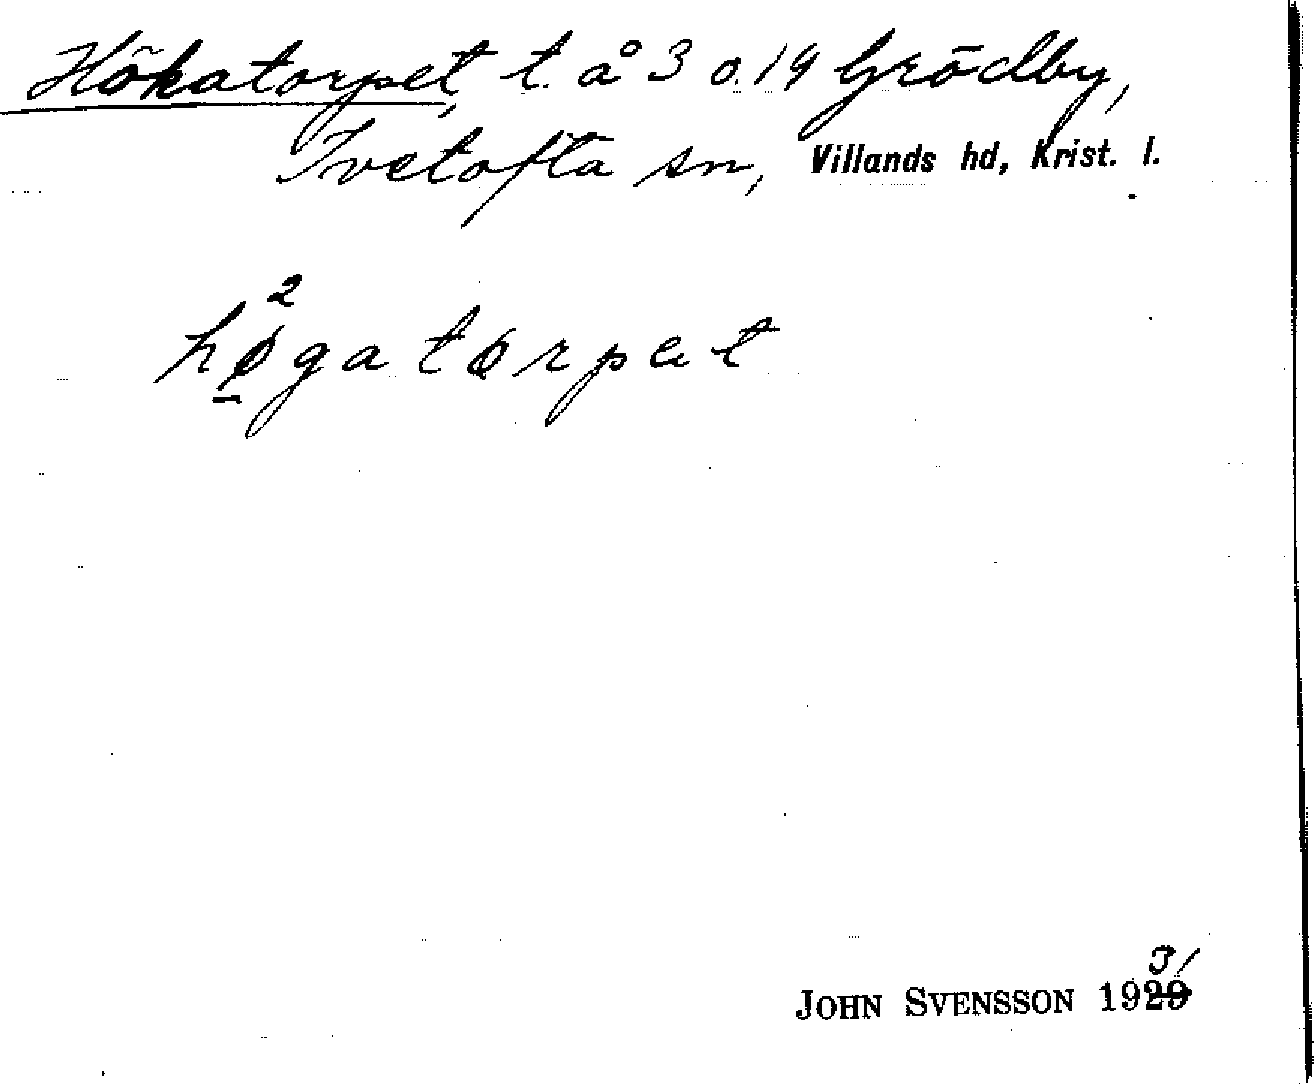 Hökatorpet, t. å 3 o. 19 Grödby,
Ivetofta sn, Villands hd, Krist. l.
2
høgatørpət
31
JOHN SVENSSON 1929